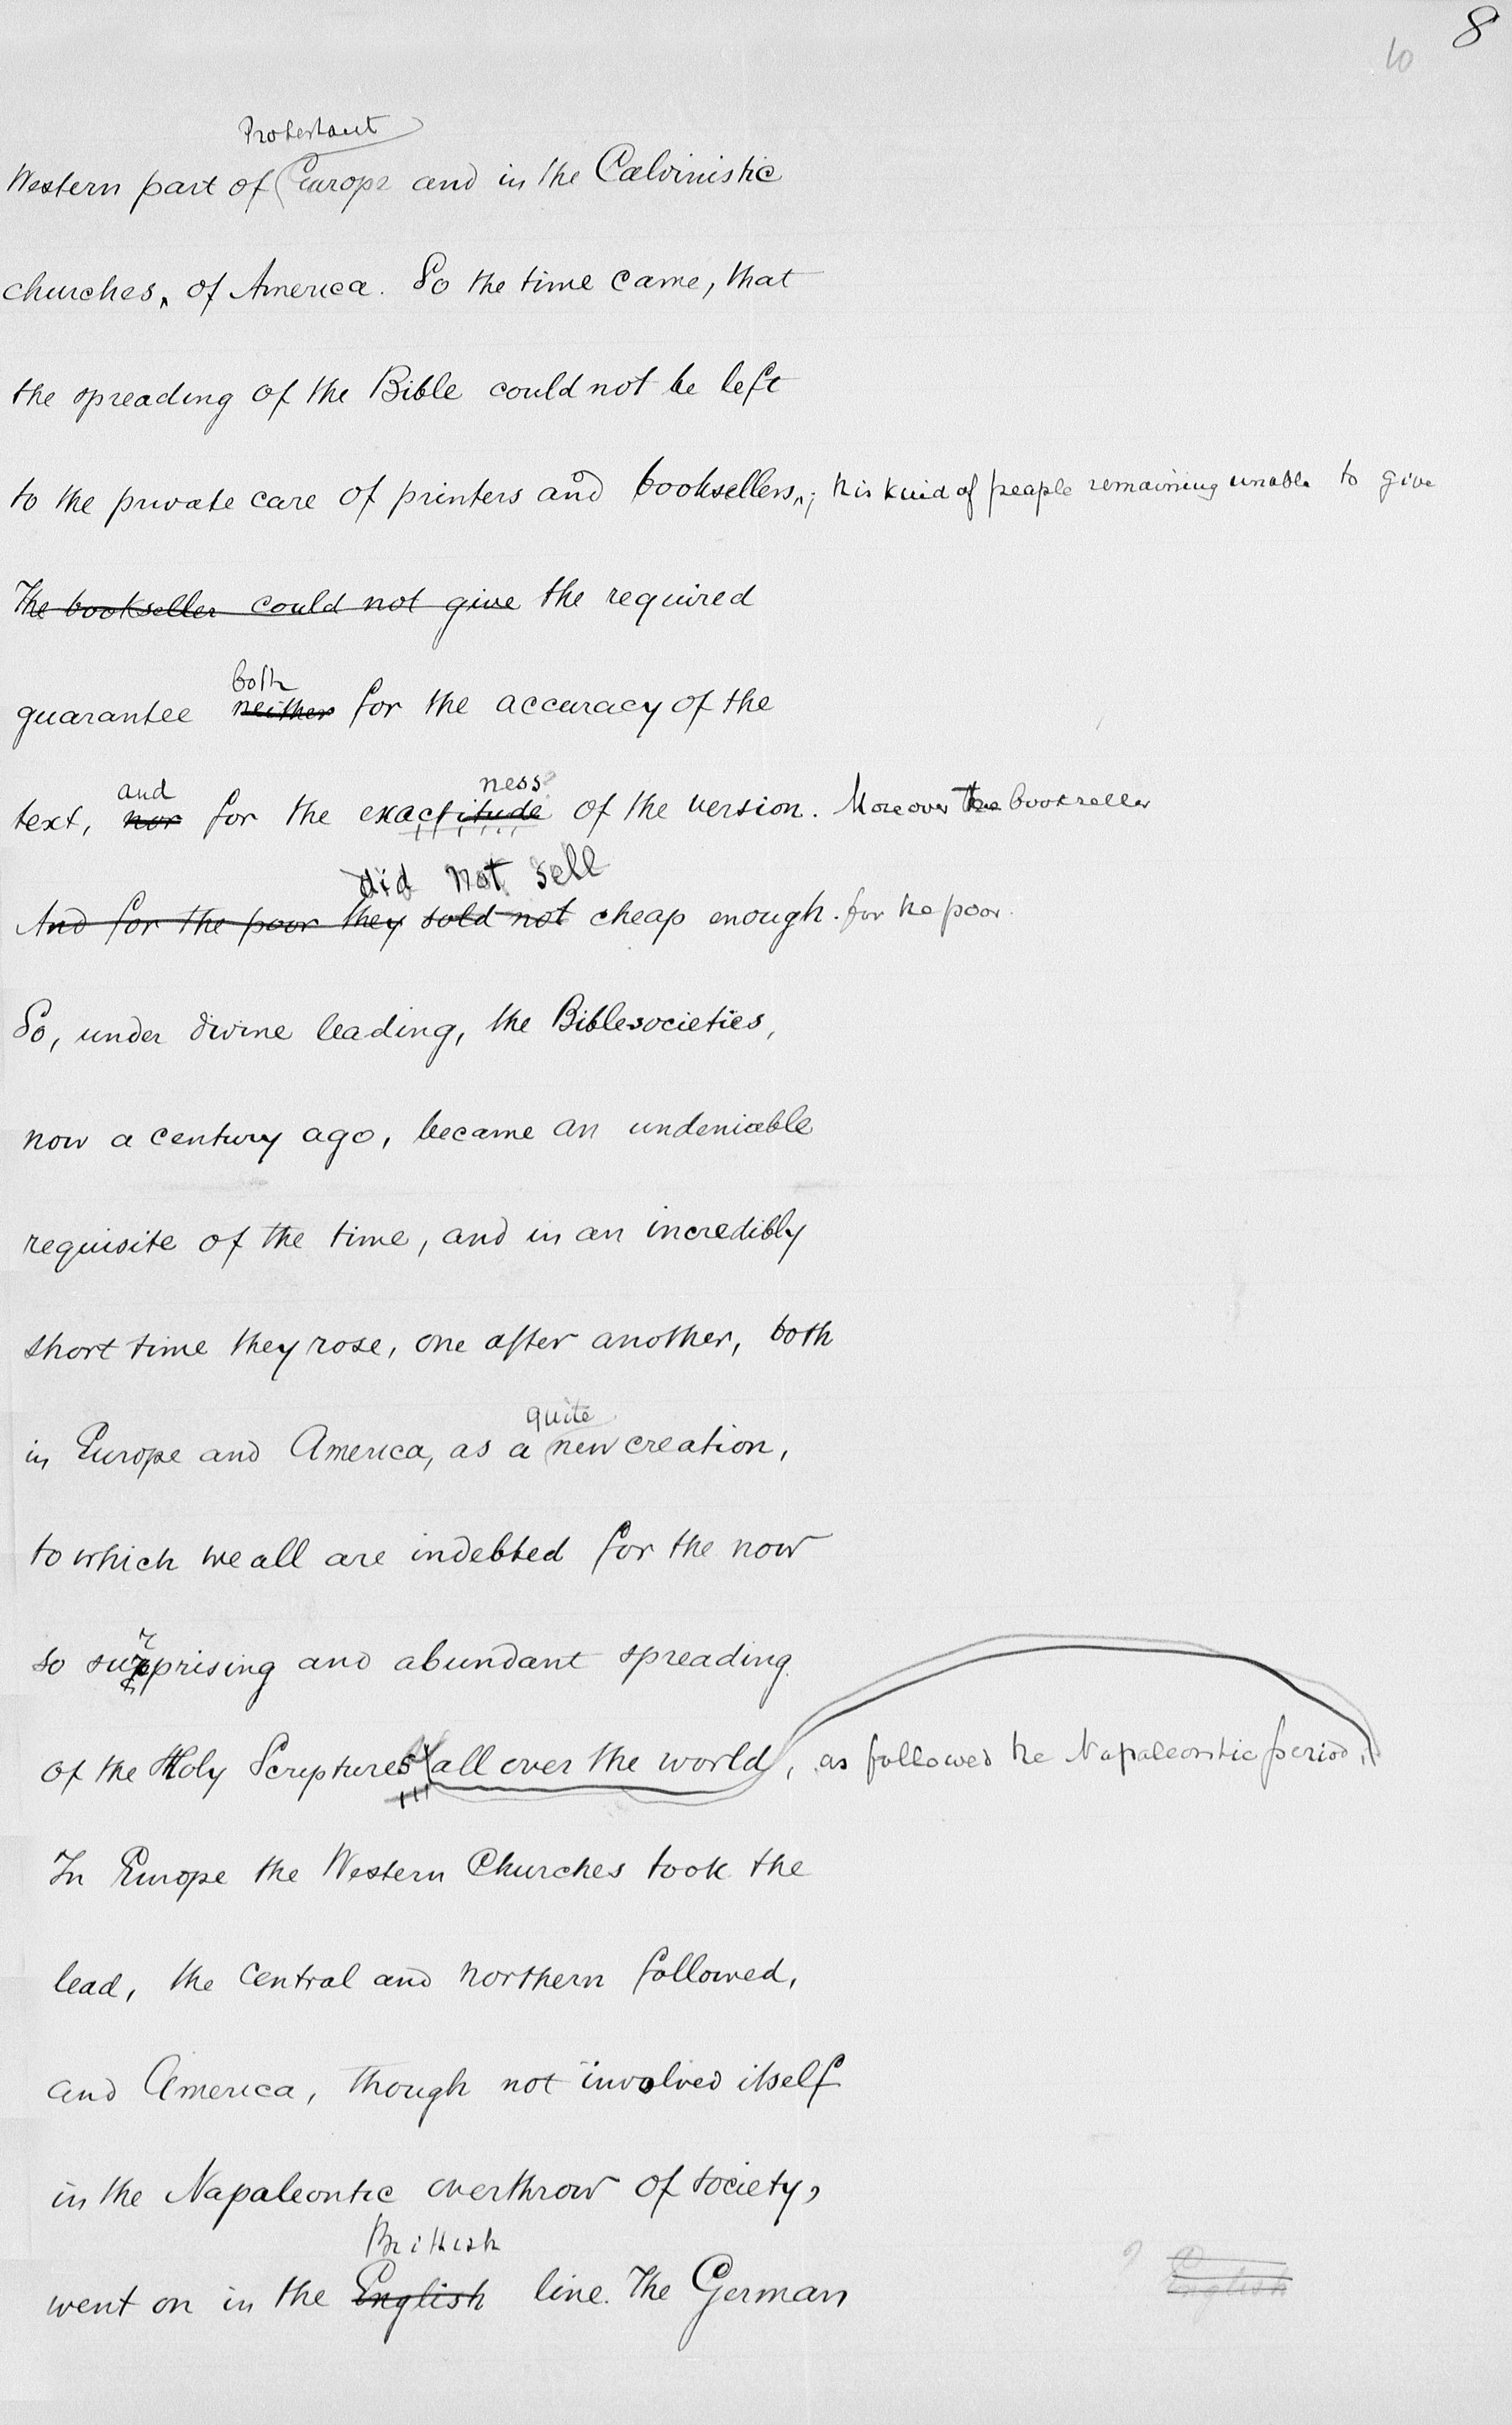 8
10
Protestant
Western part of Europe and in the Calvinistic
churches, of America. So the time came, that
the spreading of the Bible could not be left
to the private care of printers and booksellers,; this kind of people remaining unable to give
The bookseller could not give the required
both
guarantee neither for the accuracy of the
and ness
text, nor for the exactitude of the version. Moreover the bookseller
did not sell
And for the poor they sold not cheap enough. for the poor.
So, under divine leading, the Biblesocieties,
now a century ago, became an undeniable
requisite of the time, and in an incredibly
short time they rose, one after another, both
quite
in Europe and America, as a new creation,
to which we all are indebted for the now
r
so surprising and abundant spreading
of the Holy Scriptures all over the world, as followed the Napaleontic period,
In Europe the Western Churches took the
lead, the central and northern followed,
and America, though not involved itself
in the Napaleontic overthrow of society,
Brittish
went on in the English line. The German
? English